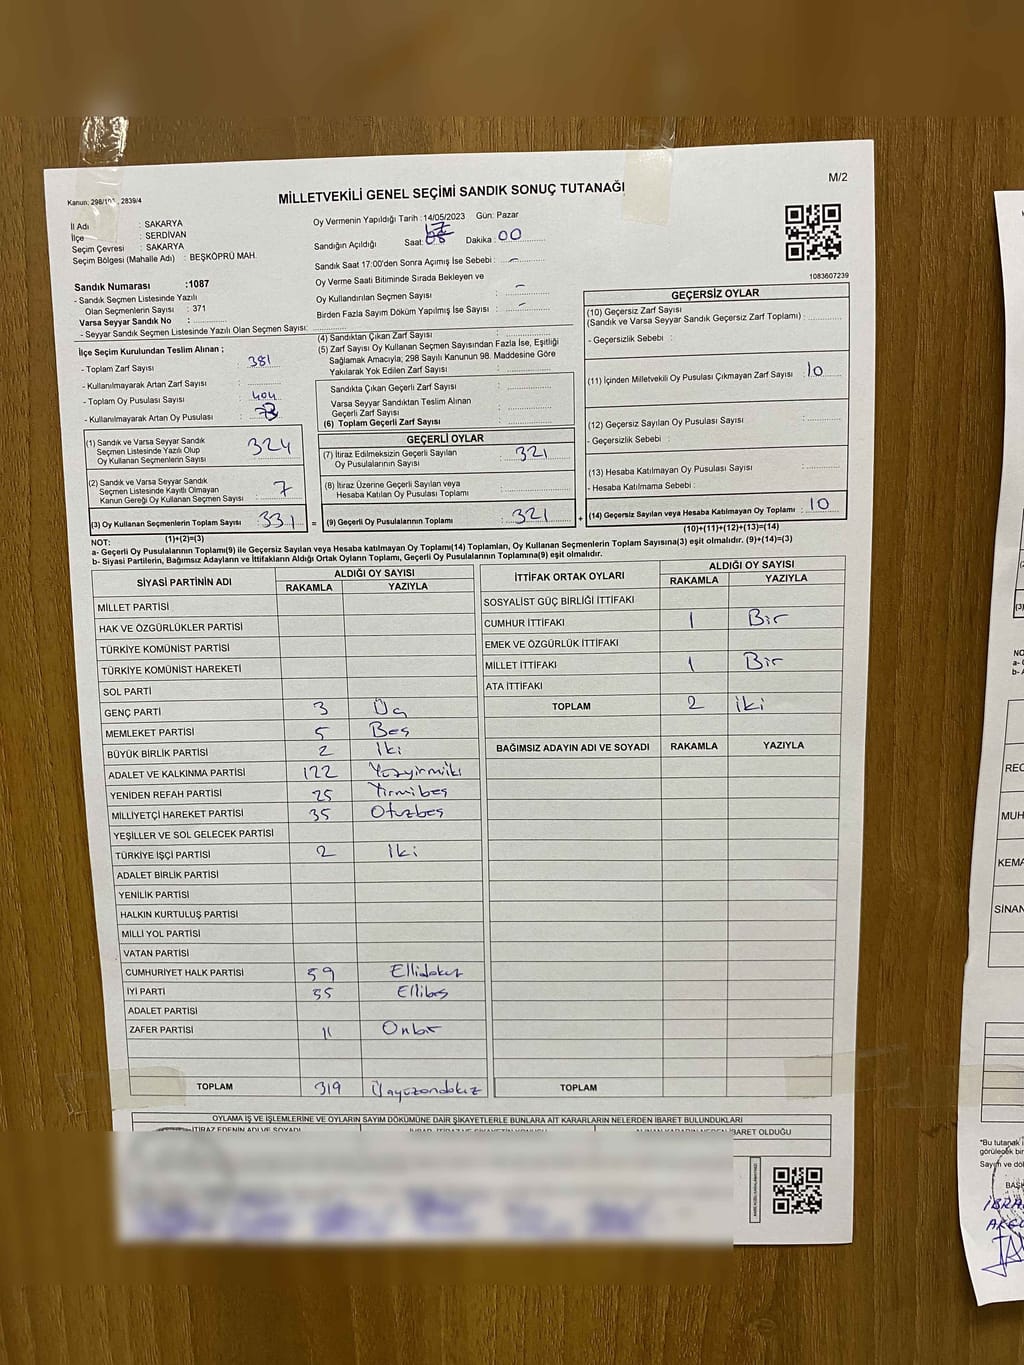 M/2
Kanun: 298/10 , 2839/4
MİLLETVEKİLİ GENEL SEÇİMİ SANDIK SONUÇ TUTANAĞI
İl Adı : SAKARYA
İlçe : SERDİVAN
Seçim Çevresi : SAKARYA
Seçim Bölgesi (Mahalle Adı) : BEŞKÖPRÜ MAH.
Sandık Numarası :1087
- Sandık Seçmen Listesinde Yazılı
Olan Seçmenlerin Sayısı : 371
Varsa Seyyar Sandık No :
- Seyyar Sandık Seçmen Listesinde Yazılı Olan Seçmen Sayısı:
Oy Vermenin Yapıldığı Tarih : 14/05/2023 Gün: Pazar
Sandığın Açıldığı Saat: Dakika : 00
Sandık Saat 17:00'den Sonra Açımış İse Sebebi : -
Oy Verme Saati Bitiminde Sırada Bekleyen ve
Oy Kullandırılan Seçmen Sayısı : -
Birden Fazla Sayım Döküm Yapılmış İse Sayısı : -
1083607239
İlçe Seçim Kurulundan Teslim Alınan ;
- Toplam Zarf Sayısı : 381
- Kullanılmayarak Artan Zarf Sayısı :
- Toplam Oy Pusulası Sayısı : 404
- Kullanılmayarak Artan Oy Pusulası : 73
(1) Sandık ve Varsa Seyyar Sandık
Seçmen Listesinde Yazılı Olup
Oy Kullanan Seçmenlerin Sayısı : 324
(2) Sandık ve Varsa Seyyar Sandık
Seçmen Listesinde Kayıtlı Olmayan
Kanun Gereği Oy Kullanan Seçmen Sayısı : 7
(3) Oy Kullanan Seçmenlerin Toplam Sayısı : 331 =
(1)+(2)=(3)
(4) Sandıktan Çıkan Zarf Sayısı :
(5) Zarf Sayısı Oy Kullanan Seçmen Sayısından Fazla İse, Eşitliği
Sağlamak Amacıyla; 298 Sayılı Kanunun 98. Maddesine Göre
Yakılarak Yok Edilen Zarf Sayısı :
Sandıkta Çıkan Geçerli Zarf Sayısı :
Varsa Seyyar Sandıktan Teslim Alınan
Geçerli Zarf Sayısı :
(6) Toplam Geçerli Zarf Sayısı :
GEÇERLİ OYLAR
(7) İtiraz Edilmeksizin Geçerli Sayılan
Oy Pusulalarının Sayısı : 321
(8) İtiraz Üzerine Geçerli Sayılan veya
Hesaba Katılan Oy Pusulası Toplamı :
(9) Geçerli Oy Pusulalarının Toplamı : 321 +
GEÇERSİZ OYLAR
(10) Geçersiz Zarf Sayısı
(Sandık ve Varsa Seyyar Sandık Geçersiz Zarf Toplamı) :
- Geçersizlik Sebebi :
(11) İçinden Milletvekili Oy Pusulası Çıkmayan Zarf Sayısı : 10
(12) Geçersiz Sayılan Oy Pusulası Sayısı :
- Geçersizlik Sebebi :
(13) Hesaba Katılmayan Oy Pusulası Sayısı :
- Hesaba Katılmama Sebebi :
(14) Geçersiz Sayılan veya Hesaba Katılmayan Oy Toplamı : 10
(10)+(11)+(12)+(13)=(14)
NOT:
a- Geçerli Oy Pusulasının Toplamı(9) ile Geçersiz Sayılan veya Hesaba katılmayan Oy Toplamı(14) Toplamları, Oy Kullanan Seçmenlerin Toplam Sayısına(3) eşit olmalıdır. (9)+(14)=(3)
b- Siyasi Partilerin, Bağımsız Adayların ve İttifakların Aldığı Ortak Oyların Toplamı, Geçerli Oy Pusulalarının Toplamına(9) eşit olmalıdır.
SİYASİ PARTİNİN ADI ALDIĞI OY SAYISI
RAKAMLA YAZIYLA
MİLLET PARTİSİ
HAK VE ÖZGÜRLÜKLER PARTİSİ
TÜRKİYE KOMÜNİST PARTİSİ
TÜRKİYE KOMÜNİST HAREKETİ
SOL PARTİ
GENÇ PARTİ 3 Üç
MEMLEKET PARTİSİ 5 Beş
BÜYÜK BİRLİK PARTİSİ 2 İki
ADALET VE KALKINMA PARTİSİ 122 Yüzyirmiiki
YENİDEN REFAH PARTİSİ 25 Yirmibeş
MİLLİYETÇİ HAREKET PARTİSİ 35 Otuzbeş
YEŞİLLER VE SOL GELECEK PARTİSİ
TÜRKİYE İŞÇİ PARTİSİ 2 İki
ADALET BİRLİK PARTİSİ
YENİLİK PARTİSİ
HALKIN KURTULUŞ PARTİSİ
MİLLİ YOL PARTİSİ
VATAN PARTİSİ
CUMHURİYET HALK PARTİSİ 59 Ellidokuz
İYİ PARTİ 55 Ellibeş
ADALET PARTİSİ
ZAFER PARTİSİ 11 Onbir
TOPLAM 319 Üçyüzondokuz
İTTİFAK ORTAK OYLARI ALDIĞI OY SAYISI
RAKAMLA YAZIYLA
SOSYALİST GÜÇ BİRLİĞİ İTTİFAKI
CUMHUR İTTİFAKI 1 Bir
EMEK VE ÖZGÜRLÜK İTTİFAKI
MİLLET İTTİFAKI 1 Bir
ATA İTTİFAKI
TOPLAM 2 iki
BAĞIMSIZ ADAYIN ADI VE SOYADI RAKAMLA YAZIYLA
TOPLAM
OYLAMA İŞ VE İŞLEMLERİNE VE OYLARIN SAYIM DÖKÜMÜNE DAİR ŞİKAYETLERLE BUNLARA AİT KARARLARIN NELERDEN İBARET BULUNDUKLARI
İTİRAZ EDENİN ADI VE SOYADI
İBARET OLDUĞU
(3)
NO
a-
b-
REC
MUH
KEMA
SİNAN
"Bu tutanak i
görülecek bir
Sayım ve dö
BAŞK
İBRA